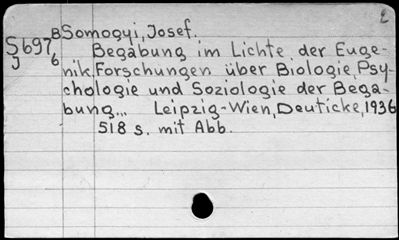 2
B Somogyi, Josef.
S697 Begabung im Lichte der Euge-
J 6 nik, Forschungen über Biologie, Psy-
chologie und Soziologie der Bega-
bung... Leipzig-Wien, Deuticke, 1936
518 s. mit Abb.